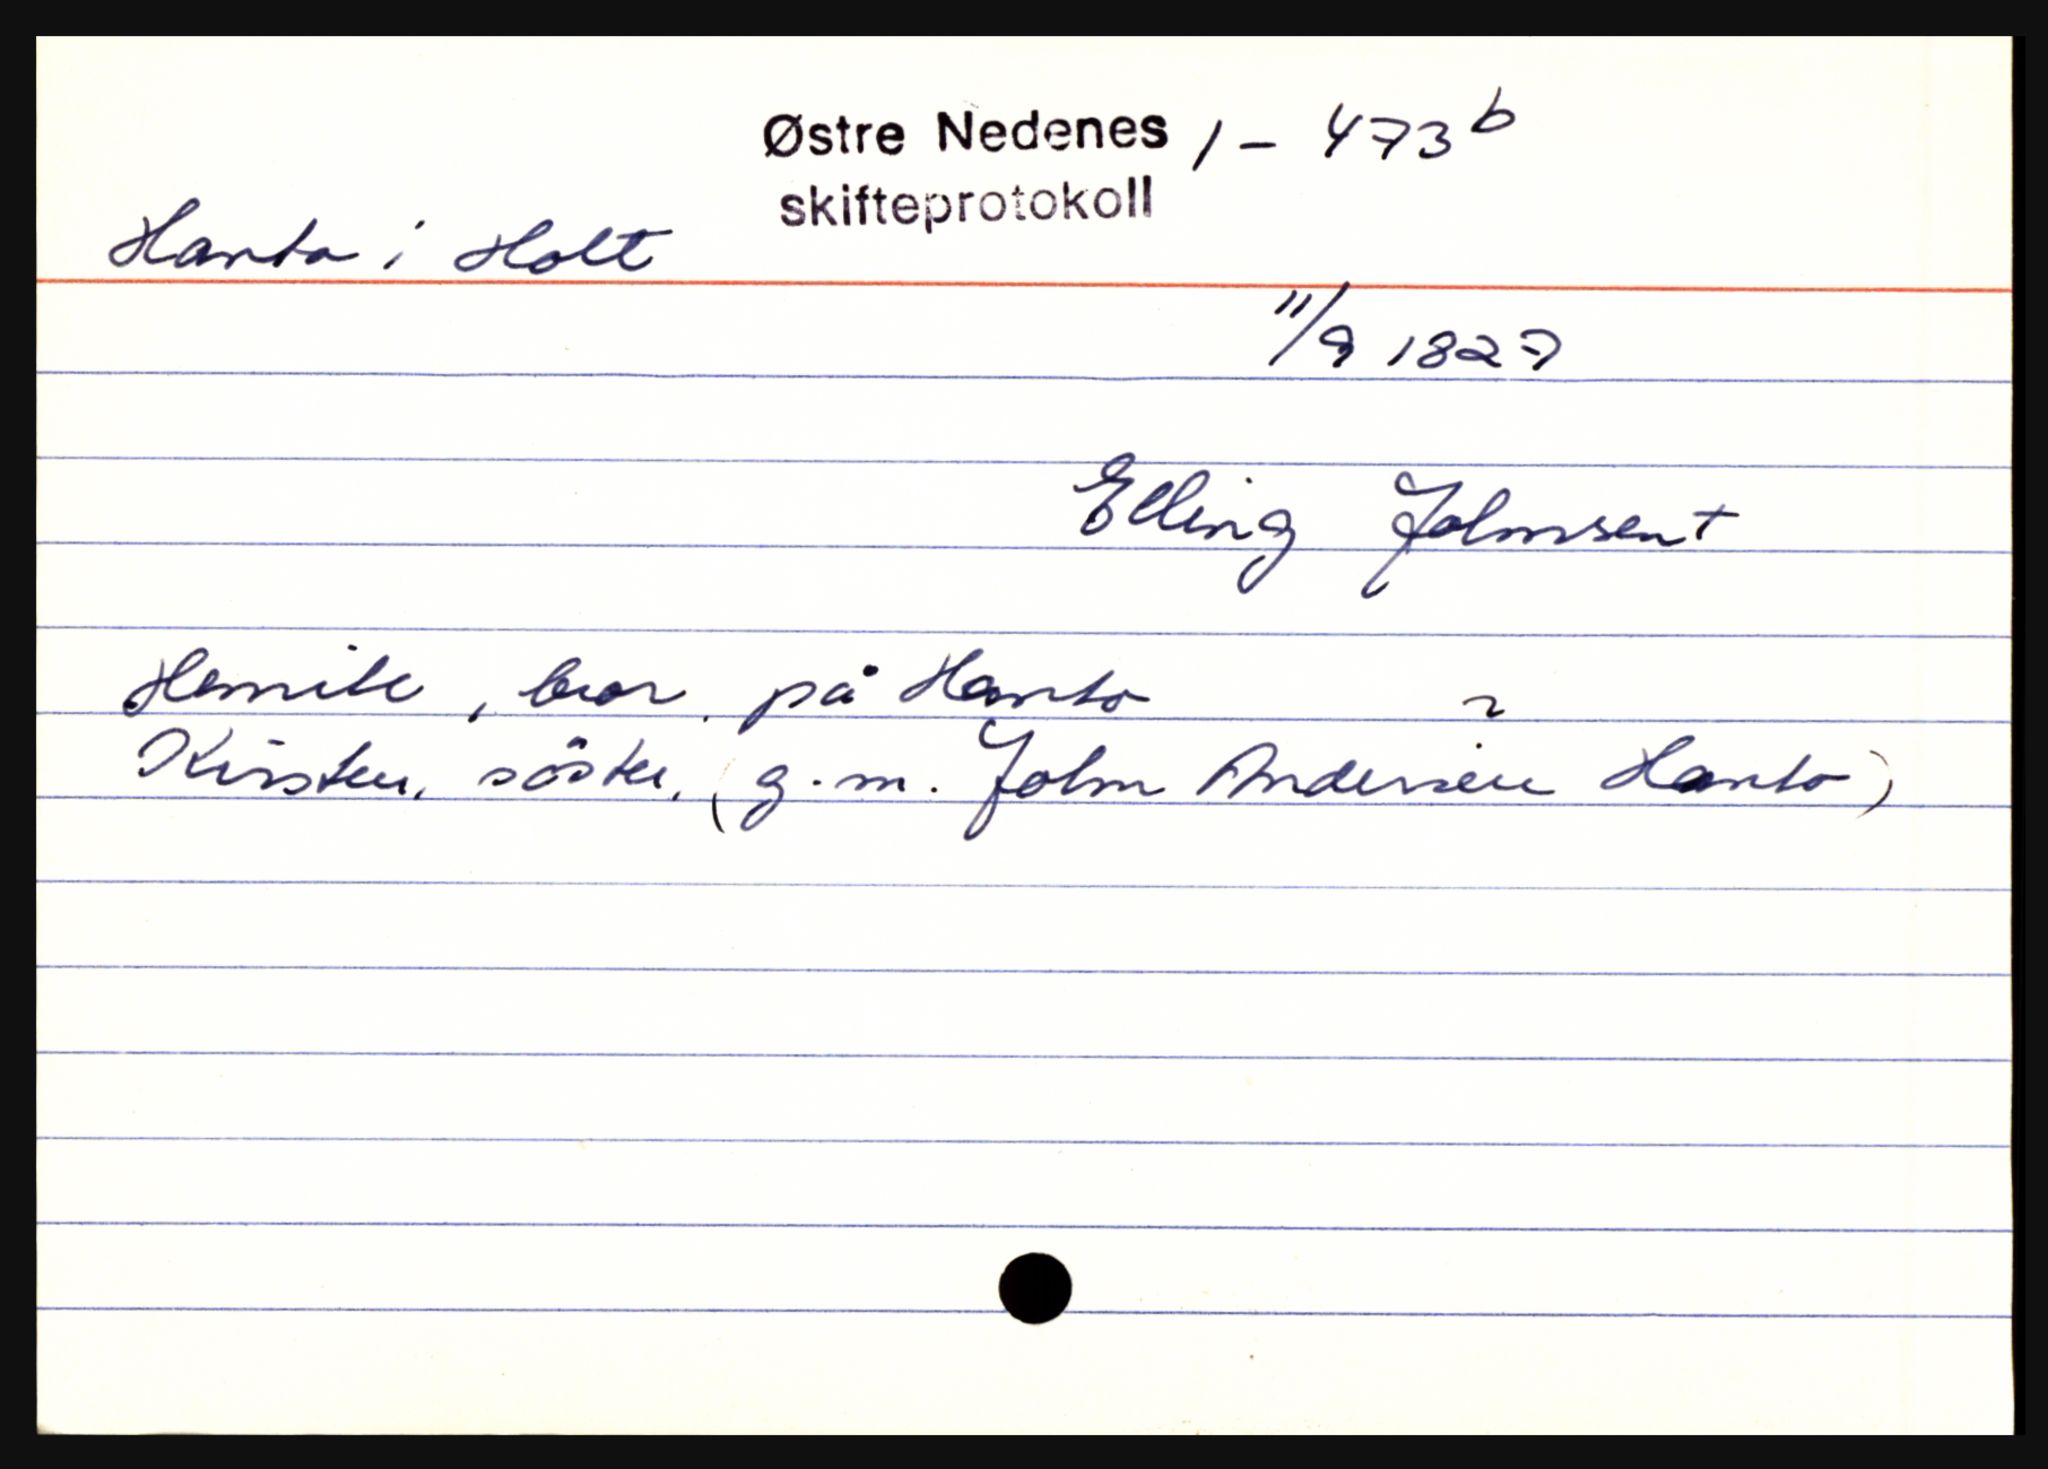 Østre Nedenes 1 - 473 b
skifteprotokoll
Hanto i Holt
11/9 1827
Elling Johnsen †
Henrik, bror, på Hanto
2
Kirsten, söster, (g.m. John Andersen Hanto)